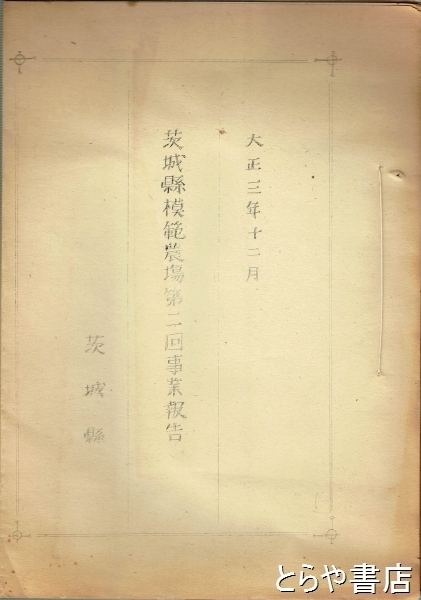 大正三年十二月
茨城縣模範農塲第二回事業報告
茨城縣
とらや書店